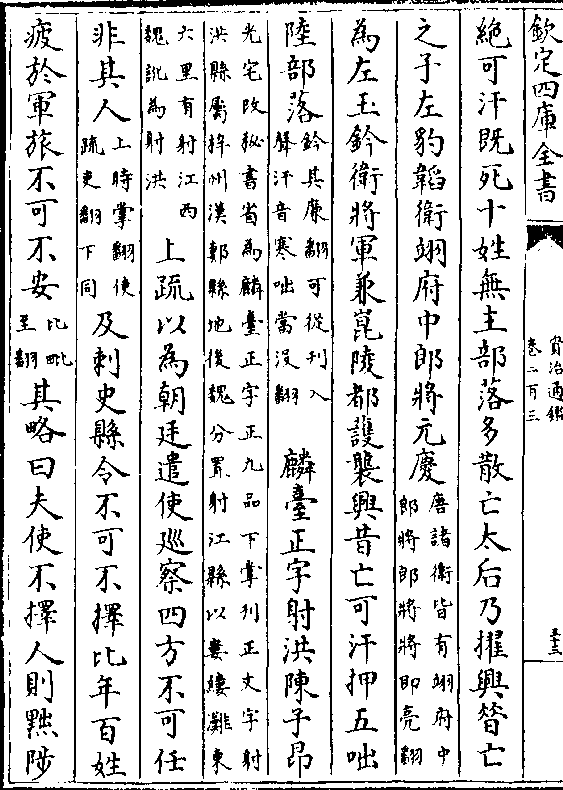 欽定四庫全書
資治通鑑
卷二百三
絶可汗既死十姓無主部落多散亡太后乃擢興昔亡
之子左豹韜衛翊府中郎將元慶唐諸衛皆有翊府中
郎將郎將將即亮翻
為左玉鈐衛將軍兼崑陵都護襲興昔亡可汗押五咄
陸部落鈐其廉翻可從刋入
聲汗音寒咄當沒翻
麟臺正字射洪陳子昂
光宅改秘書省為麟臺正字正九品下掌刋正文字射
洪縣屬梓州漢郪縣地後魏分置射江縣以婁縷灘東
六里有射江西
魏訛為射洪
上疏以為朝廷遣使廵察四方不可任
非其人上時掌翻使
疏吏翻下同
及刺史縣令不可不擇比年百姓
疲於軍旅不可不安比毗
至翻
其略曰夫使不擇人則黜陟